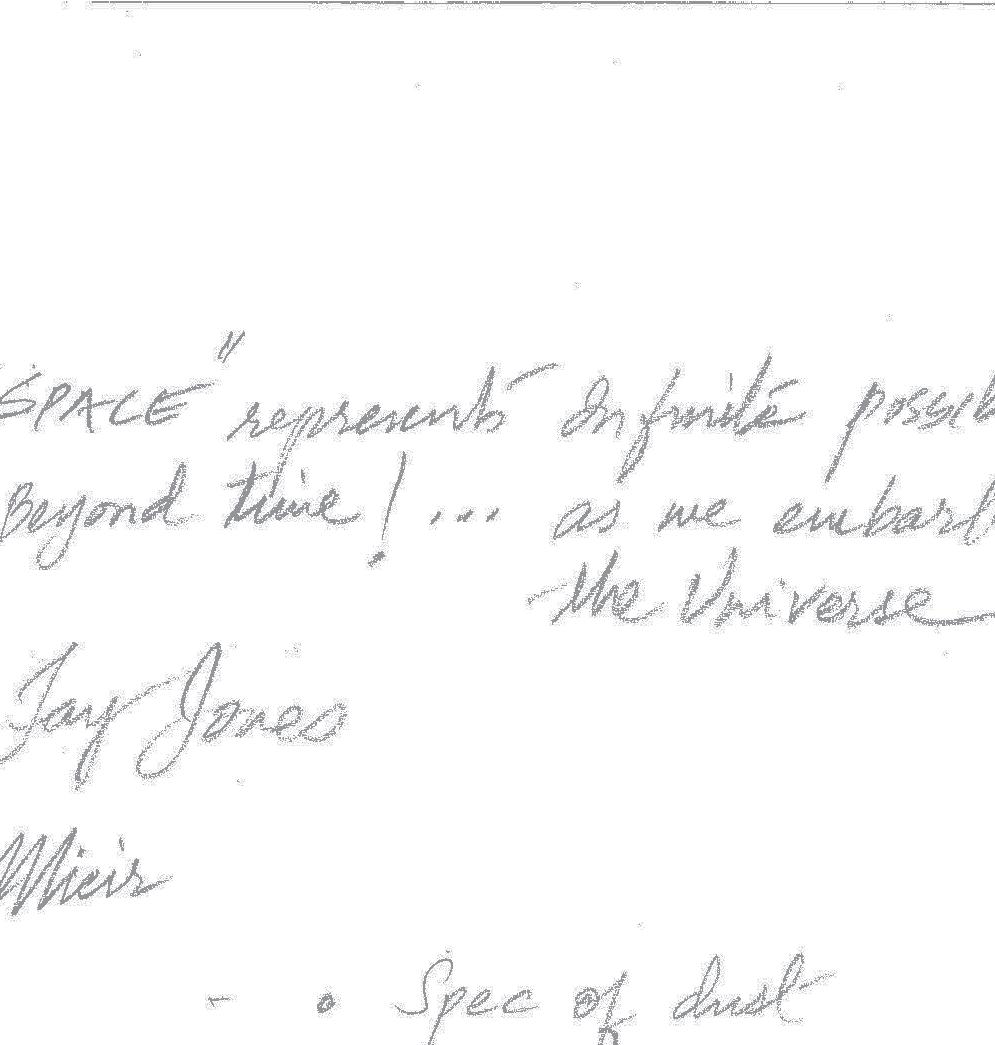 "SPACE" represents Infinite possib
Beyond time! ... as we embark
the Universe
Jay Jones
- o Spec of dust